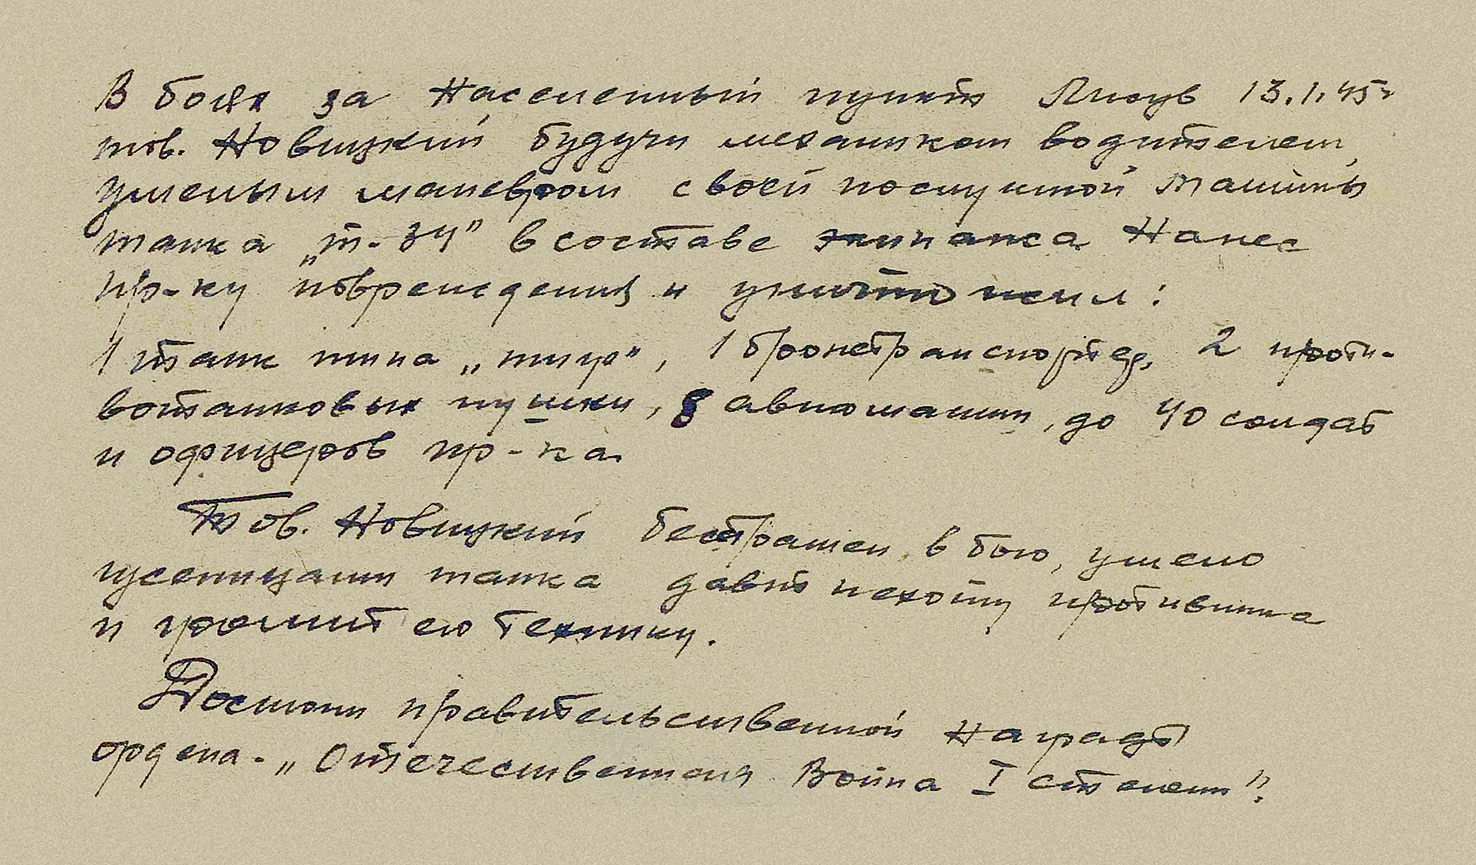 В боях за Населенный пункт Лисув 13.1.45г
тов. Новицкий будучи механиком водителем,
умелым маневром своей послушной машины
танка „т-34" в составе экипажа Нанес
пр-ку повреждения и уничтожил:
1 танк типа „тигр", 1 бронетранспортер, 2 проти-
вотанковых пушки, 8 автомашин, до 40 солдат
и офицеров пр-ка.
Тов. Новицкий бесстрашен в бою, умело
гусеницами танка давит пехоту противника
и громит его технику.
Достоин правительственной Награды
ордена - „Отечественная Война I степени".